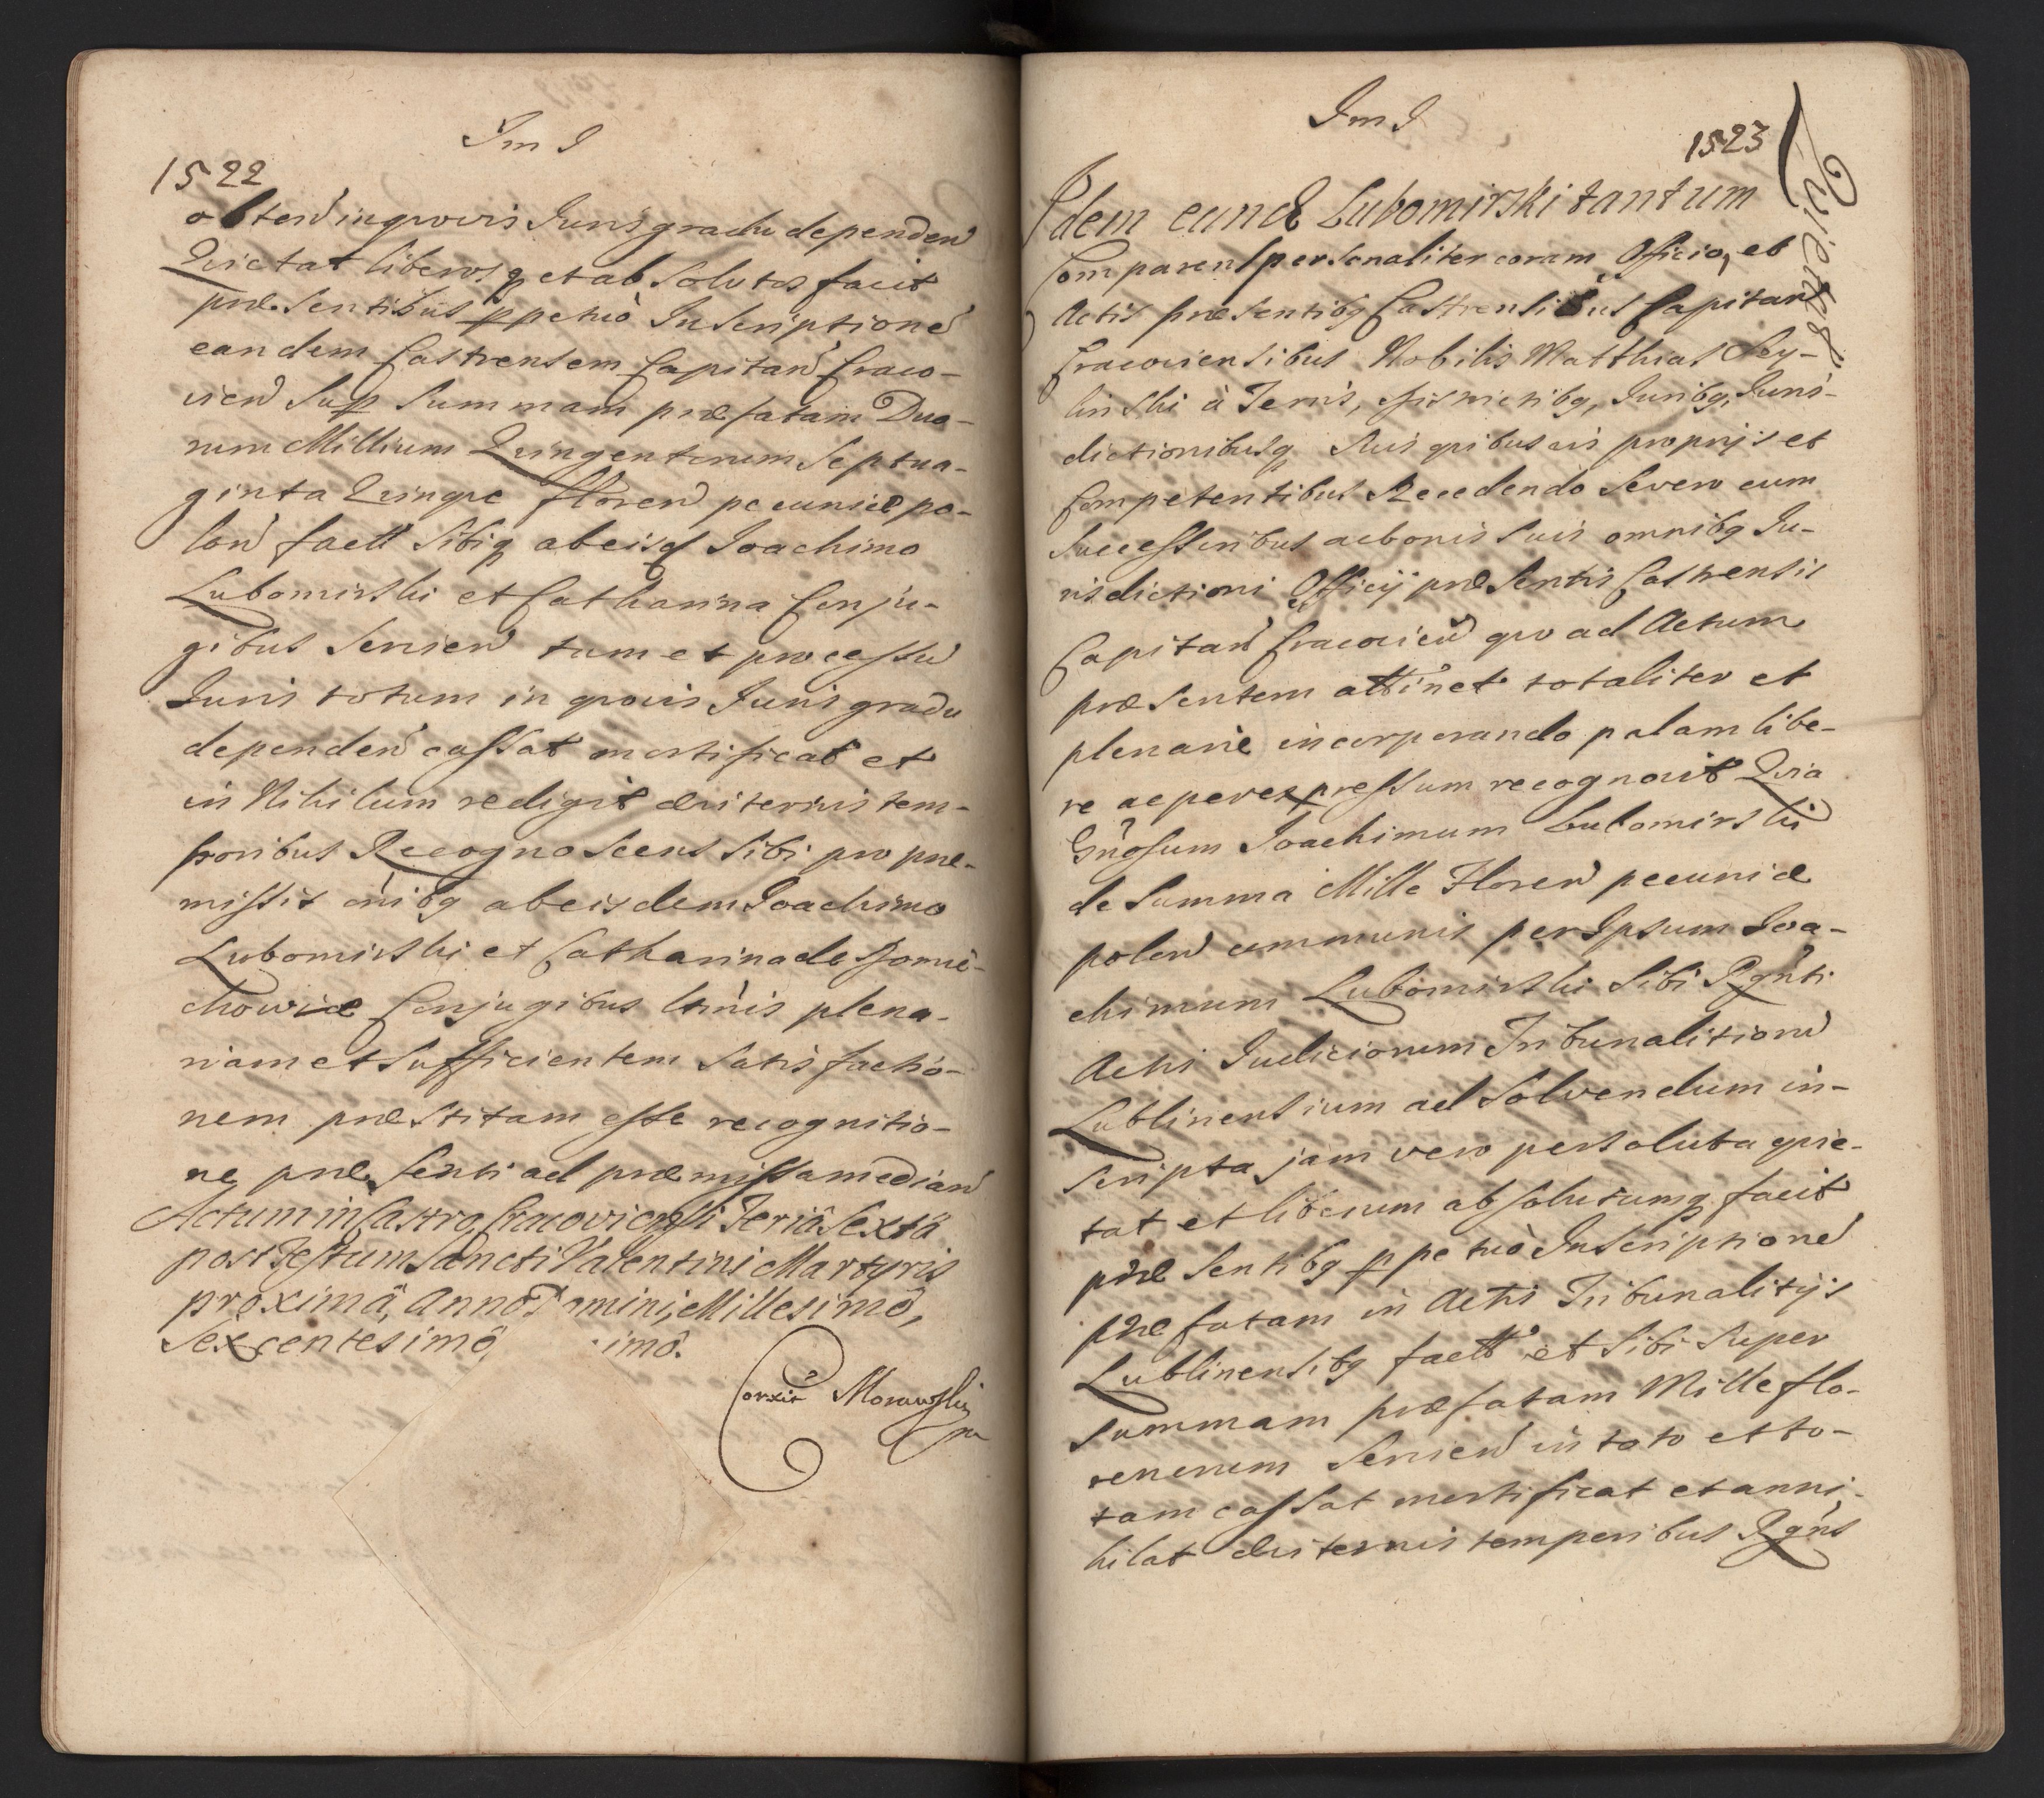 Im I
1522
obten in quovis Juris gradu dependen
Quietat liberosq et absolutos facit
præsentibus ppetuò Inscriptione
eandem Castrensem Capitan Craco-
vien Sup Summam præfatam Duo-
rum Millium Quingentorum Septua-
ginta Quinque floren pecuniæ po-
lon factt Sibiq ab eisd Joachimo
Lubomirski et Catharina Conju-
gibus Servien tum et processu
Juris totum in quovis Juris gradu
dependen cassat mortificat et
in Nihilum redigit æviternis tem-
poribus Recognoscens Sibi pro præ-
missis oĩbq ab eisdem Joachimo
Lubomirski et Catharina de
chowice Conjugibus plena-
riam et Sufficientem Satisfactio-
nem præstitam esse recognitio-
ne præsenti ad præmissa median
Actum in Castro Cracoviensi Feriâ Sextâ
post Festum Sancti Valentini Martyris
proximâ, Anno Domini, Millesimô,
Sexcentesimô imô.
Corrxit Morawski
mp
Im I
1523
Quietat
Idem eund Lubomirski tantum
Comparens personaliter coram Officio, et
Actis præsentibq Castrensibus Capitan
Cracoviensibus Nobilis Matthias
linski à Terris, Districtibq, Juribq, Juris-
dictionibusq Suis quibusvis proprijs et
Competentibus Recedendo Se vero cum
Successoribus ac bonis Suis omnibq Ju-
risdictioni Officij præsentis Castrensis
Capitan Cracovien quo ad Actum
præsentem attinet totaliter et
plenarie incorporando palam libe-
re ac per expressum recognovit Quia
Gñosum Joachimum Lubomirski
de Summa Mille Floren pecuniæ
polon communis per Ipsum Joa-
chimum Lubomirski Sibi Rgnti
Actis Judiciorum Tribunalitiorũ
Lublinensium ad Solvendum in-
scripta jam vero persoluta quie-
tat et liberum absolutumq facit
præsentibq ppetuò Inscriptione
præfatam in Actis Tribunalitijs
Lublinensibq factt et Sibi Super
Summam præfatam Mille flo-
renorum Servien in toto et to-
tam cassat mortificat et anni-
hilat æviternis temporibus Rgñs